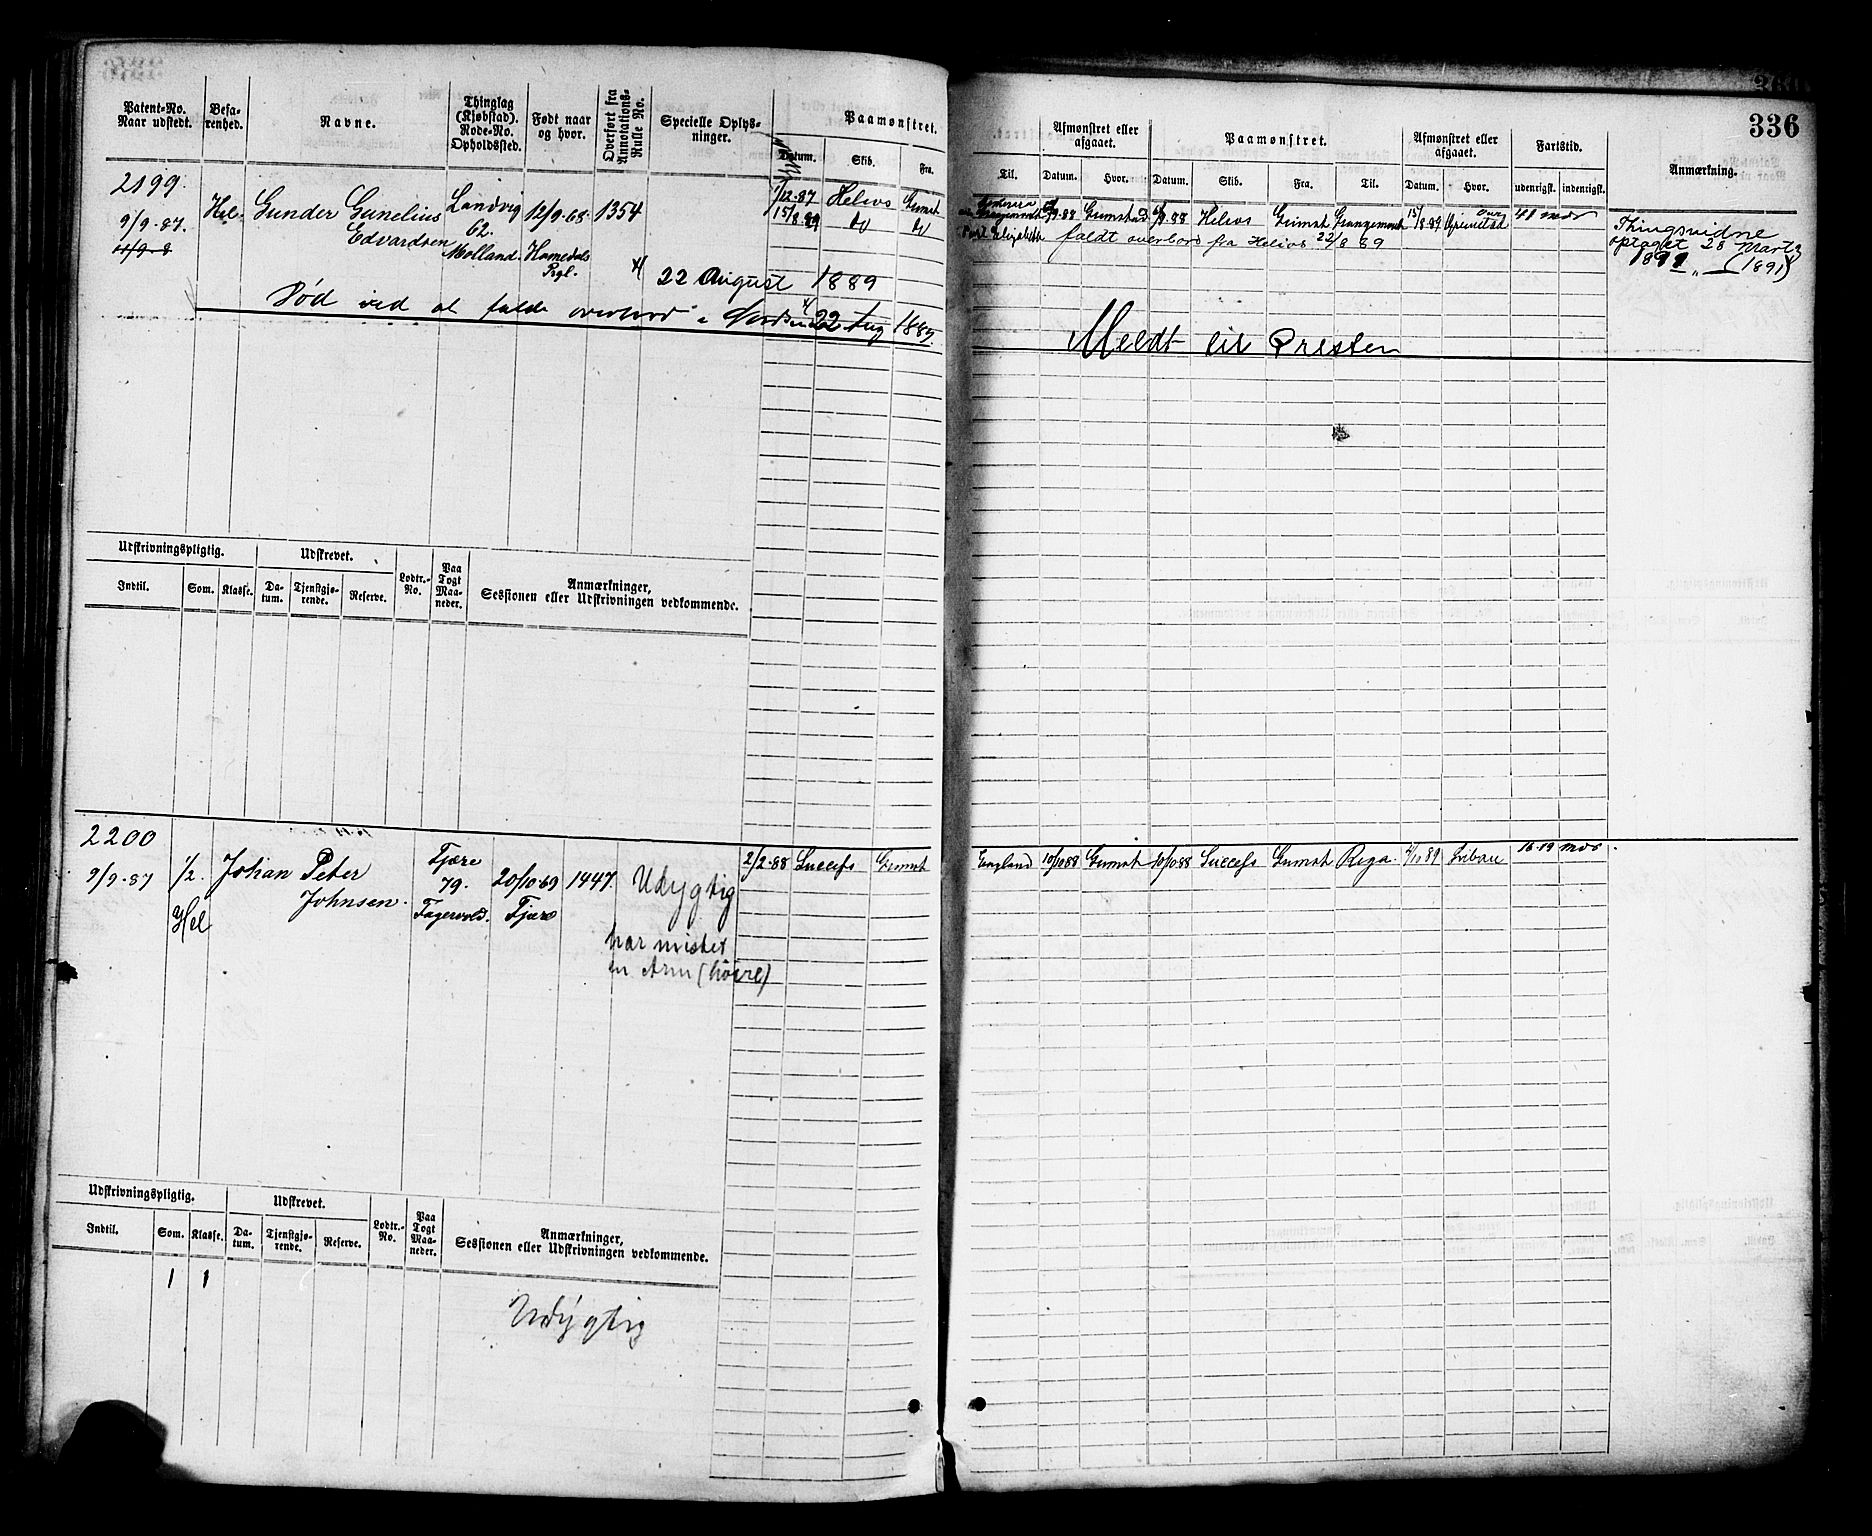 336
Patent-No.
Naar udstedt.
Befa-
renhed.
Navne.
Thinglag
(Kjøbstad).
Rode-No.
Opholdssted.
Født naar
og hvor.
Overført fra
Annotations-
Rulle No.
Specielle Oplys-
ninger.
Paamønstret.
Datum.
Skib.
Fra.
Til.
Afmønstret eller
afgaaet.
Datum.
Hvor.
Paamønstret.
Datum.
Skib.
Fra.
Til.
Afmønstret eller
afgaaet.
Datum.
Hvor.
Fartstid.
udenrigsk.
indenrigsk.
Anmærkning.
2199.
9/9.87.
Hel.
Gunder Gunelius
Edvardsen
Landvig
62.
Molland.
12/9.68.
Homedals
Prgl.
1354
1/12.87 Helios Grimst
15/8.89 do do
Grangemouth
Port Elizabeth
9.88 Grimstad 9.88 Helios Grimst Grangemouth 15/8.89 Grimstad
faldt overbord fra Helios 22/8 89
Thingsvidne
optaget 28 Marts
1891 (1891)
22 August 1889
Død ved at falde overbord i Nordsøen 22 Aug 1889.
Meldt til Presten
Udskrivningspligtig.
Indtil.
Som.
Klasse.
Udskrevet.
Da-
tum.
Tjenstgjø-
rende.
Reserve.
Lodtr.-
No.
Paa
Togt
Maa-
neder.
Anmærkninger,
Sessionen eller Udskrivningen vedkommende.
2200
9/9.87
1/2.
Hel
Johan Peter
Johnsen.
Fjære
79.
Fagervold.
20/10.69
Fjære
1447.
Udygtig
har mistet
en Arm (høire)
2/2.88 Success Grimst
England 10/10 88 Grimst 10/10 88 Success Grimst Riga. 4/11 89 Libau 16.19 mdr.
Udskrivningspligtig.
Indtil.
Som.
Klasse.
Udskrevet.
Da-
tum.
Tjenstgjø-
rende.
Reserve.
Lodtr.-
No.
Paa
Togt
Maa-
neder.
Anmærkninger,
Sessionen eller Udskrivningen vedkommende.
1 1
Udygtig